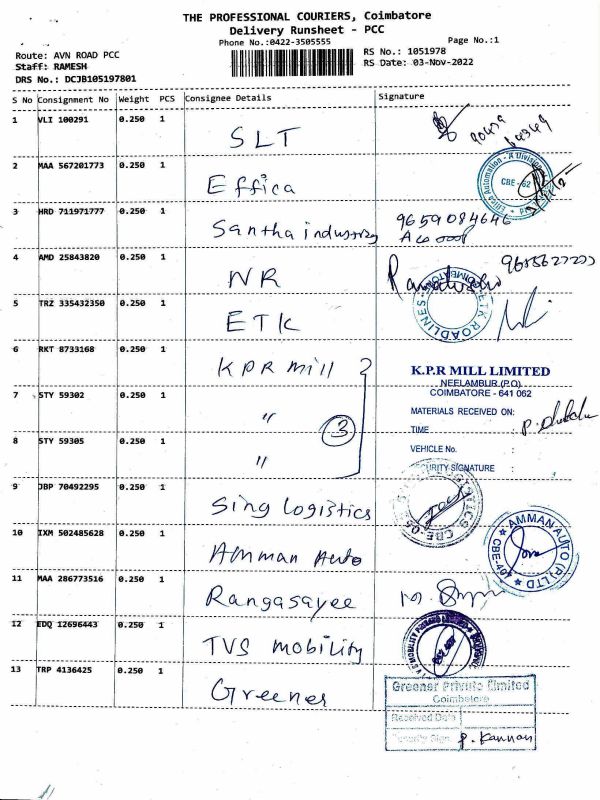 THE PROFESSIONAL COURIERS, Coimbatore
Delivery Runsheet - PCC
Phone No.:0422-3505555
Page No.:1
Route: AVN ROAD PCC
RS No.: 1051978
Staff: RAMESH
RS Date: 03-Nov-2022
DRS No.: DCJB105197801
S No Consignment No Weight PCS Consignee Details Signature
1 VLI 100291 0.250 1 SLT
2 MAA 567201773 0.250 1 Effica
CBE - 62
3 HRD 711971777 0.250 1 Santha industry 9659084646
4 AMD 25843820 0.250 1 NR
5 TRZ 335432350 0.250 1 ETK
ETK ROADLINES
6 RKT 8733168 0.250 1 KPR mill
K.P.R MILL LIMITED
NEELAMBUR (P.O)
COIMBATORE - 641 062
7 STY 59302 0.250 1 "
MATERIALS RECEIVED ON:
TIME :
3
8 STY 59305 0.250 1 "
VEHICLE No. :
SECURITY SIGNATURE :
9 JBP 70492295 0.250 1 Sing Logistics
10 IXM 502485628 0.250 1 Amman Auto
AMMAN AUTO (P) LTD
11 MAA 286773516 0.250 1 Rangasayee
12 EDQ 12696443 0.250 1 TVS mobility
13 TRP 4136425 0.250 1 Greener
Greener Private Limited
Coimbatore
Received Date
Security Sign P. Kannan